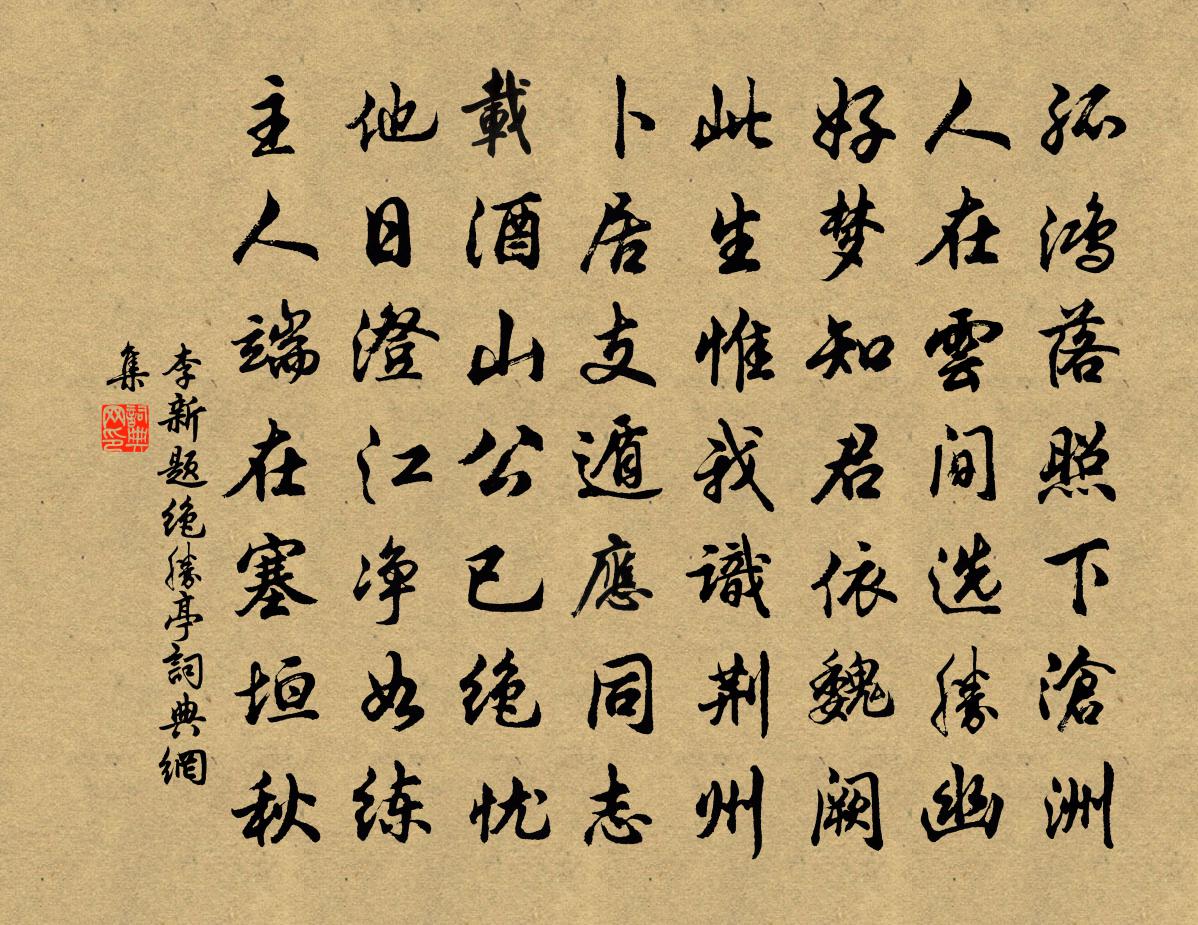 孤鸿落照下滄洲
人在雲间选勝幽
好梦知君依魏阙
此生惟我識荆州
卜居支遁應同志
載酒山公已绝忧
他日澄江净如练
主人端在塞垣秋
李新题绝勝亭詞典網
集
詞典网印